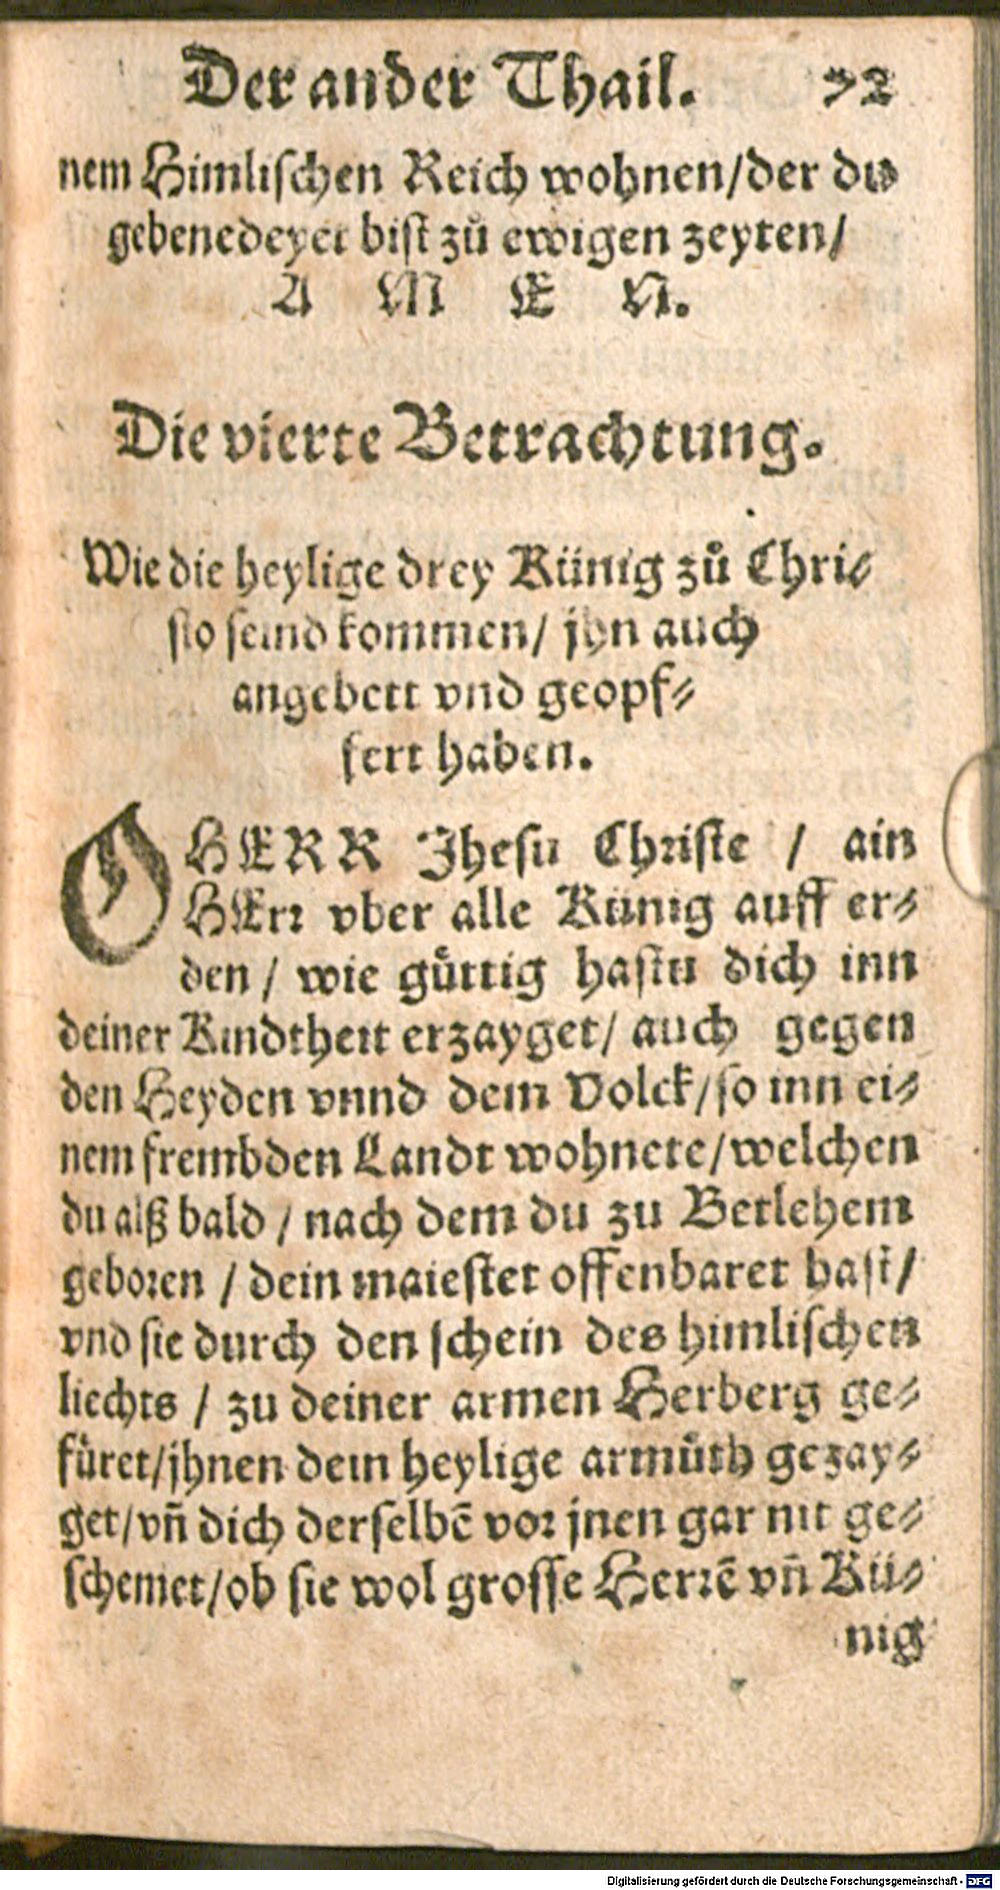 Der ander Thail. 72
nem Himlischen Reich wohnen/der du
gebenedeyet bist zů ewigen zeyten/
A M E N.
Die vierte Betrachtung.
Wie die heylige drey Künig zů Chri⸗
sto seind kommen/ jhn auch
angebett vnd geopf⸗
fert haben.
O HERR Jhesu Christe / ain
HErr vber alle Künig auff er⸗
den / wie gůttig hastu dich inn
deiner Kindtheit erzayget/ auch gegen
den Heyden vnnd dem Volck/so inn ei⸗
nem frembden Landt wohnete/welchen
du alß bald / nach dem du zu Betlehem
geboren / dein maiestet offenbaret hast/
vnd sie durch den schein des himlischen
liechts / zu deiner armen Herberg ge⸗
fůret/jhnen dein heylige armůth gezay⸗
get/vñ dich derselbē vor jnen gar nit ge⸗
schemet/ob sie wol grosse Herrē vñ Kü⸗
nig
Digitalisierung gefördert durch die Deutsche Forschungsgemeinschaft - DFG